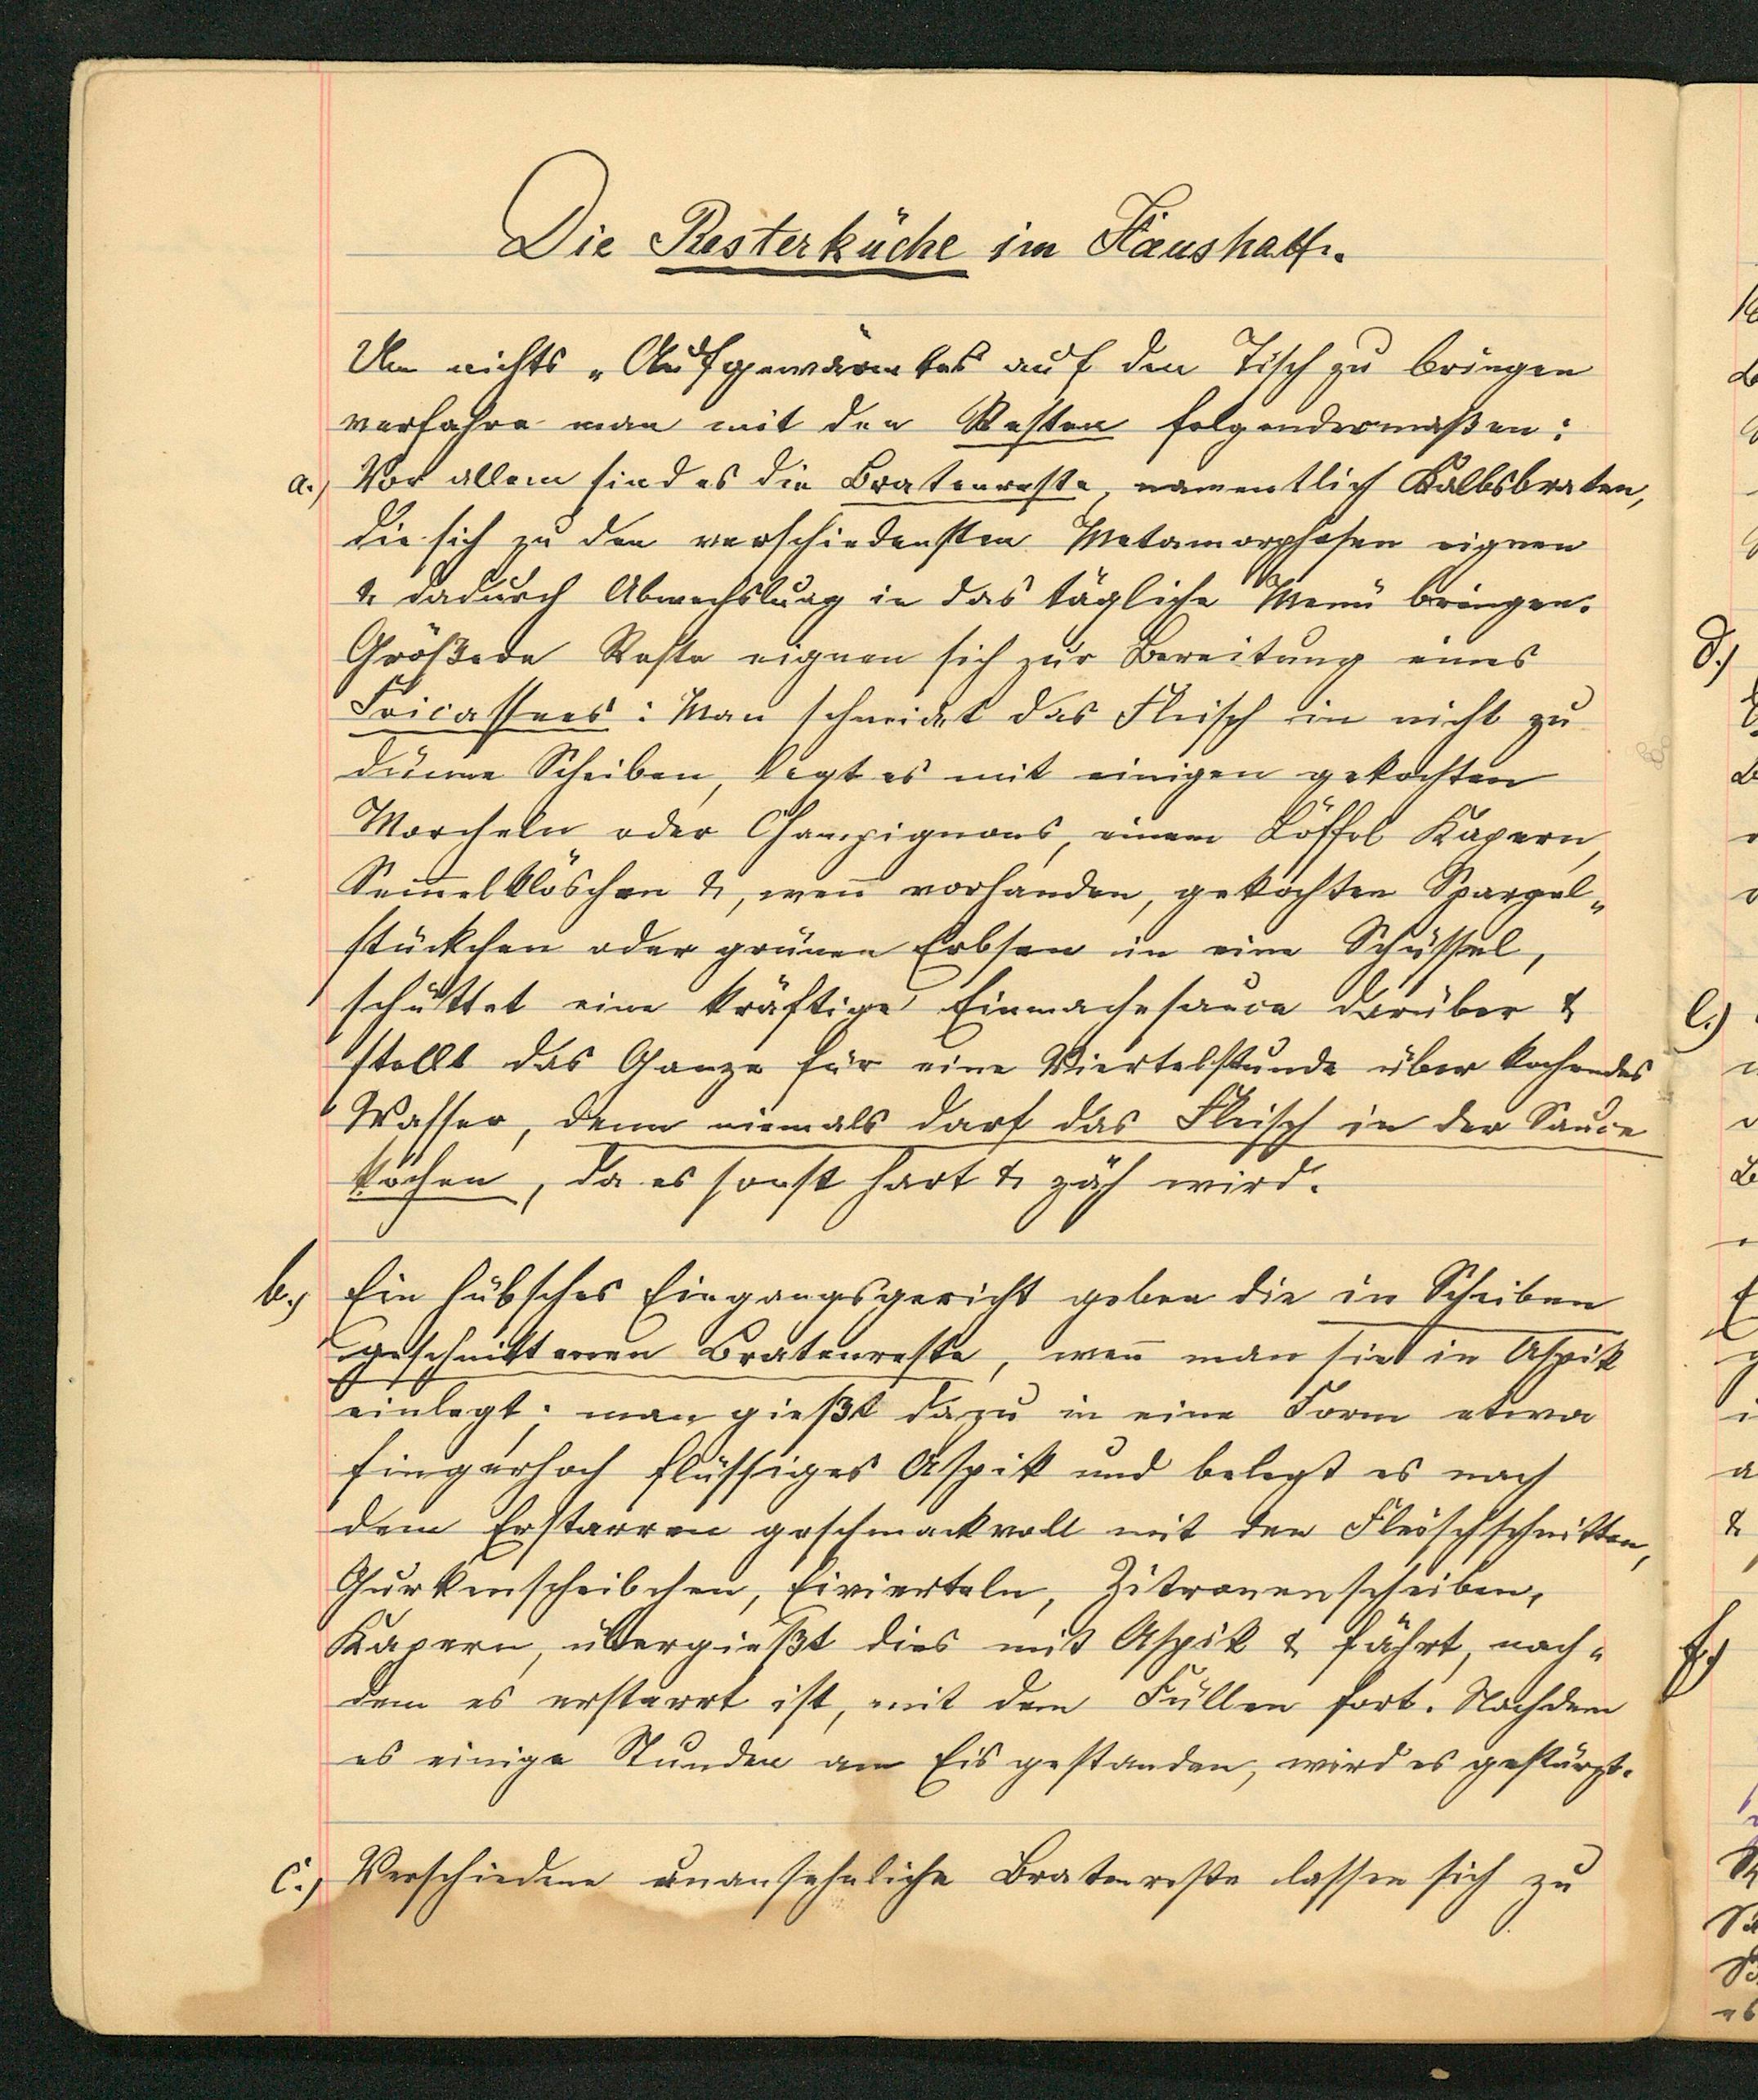 Die Resterküche im Haushalt.
Um nichts „Aufgewärmtes auf den Tisch zu bringen
verfahre man mit den Resten folgendermaßen:
a.) Vor allem sind es die Bratenreste, namentlich Kalbsbraten,
die sich zu den verschiedensten Metamorphosen eignen
& dadurch Abwechslung in das tägliche Menü bringen.
Größere Reste eignen sich zur Bereitung eines
Fricassees: Man schneidet das Fleisch in nicht zu
dünne Scheiben, legt es mit einigen gekochten
Morcheln oder Champignons, einem Löffel Kapern,
Sem̅elklöschen &, wen̅ vorhanden, gekochten Spargel„
stückchen oder grünen Erbsen in eine Schüssel,
schüttet eine kräftige Einmachsauce darüber &
stellt das Ganze für eine Viertelstunde über kochendes
Wasser, denn niemals darf das Fleisch in der Sauce
kochen, da es sonst hart & zäh wird.
b.) Ein hübsches Eingangsgericht geben die in Scheiben
geschnittenen Bratenreste, wen̅ man sie in Aspik
einlegt; man gießt dazu in eine Form etwa
fingerhoch flüssiges Aspik und belegt es nach
dem Erstarren geschmackvoll mit den Fleischschnitten,
Gurkenscheibchen, Eivierteln, Zitronenscheiben,
Kapern, übergießt dies mit Aspik & fährt, nach„
dem es erstarrt ist, mit dem Füllen fort. Nachdem
es einige Stunden am Eis gestanden, wird es gestürzt.
c.) Verschiedene unansehnliche Bratenreste lassen sich zu
d.)
e.)
f.)